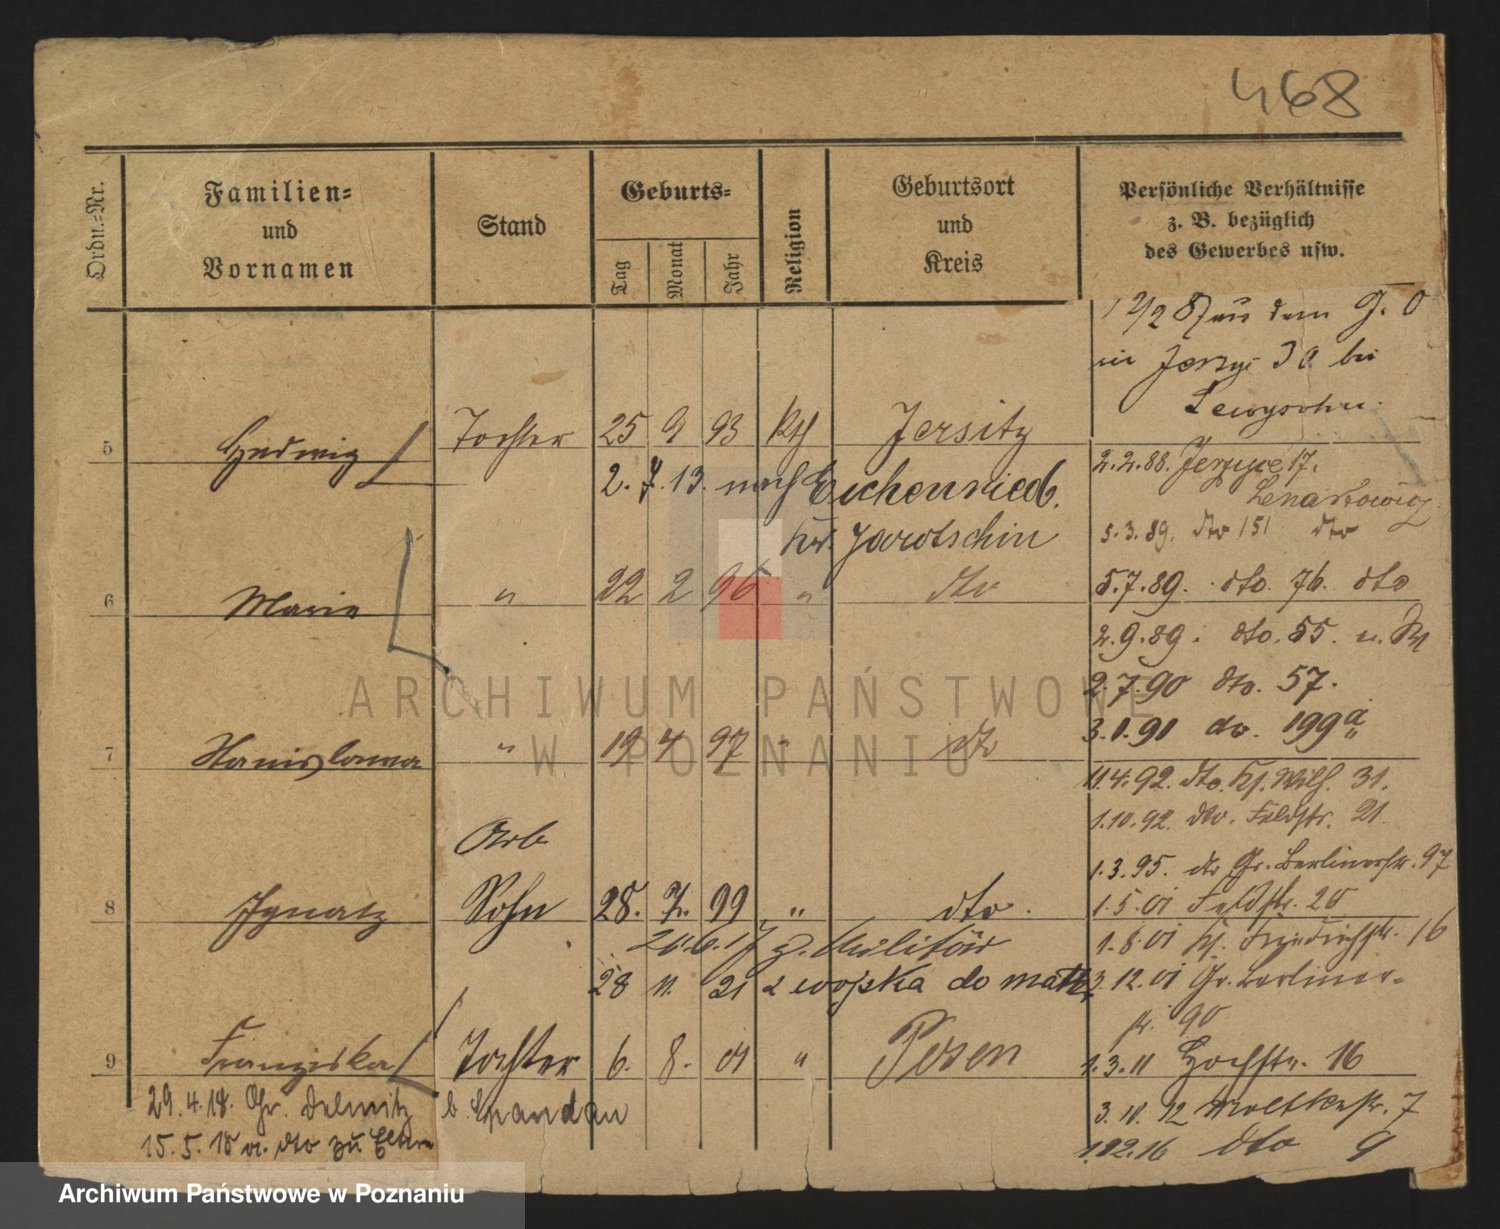 468
Ordn.-Nr.
Familien-
und
Vornamen
Stand
Geburts-
Tag
Monat
Jahr
Religion
Geburtsort
und
Kreis
Persönliche Verhältnisse
z. B. bezüglich
des Gewerbes usw.
aus dem G. O
in Jerzyce 30 bei
Lewysohn.
5 Hedwig Tochter 25 9 93 kth Jersitz
2.2.88. Jerzyce 17.
Lenartowicz
2. 7. 13. nach Eichenried.
Kr. Jarotschin
5.3.89. dto 151 dto
6 Marie " 22 2 96 " dto
5.7.89. dto. 76. dto
2.9.89. dto. 55.
2.7.90 dto. 57.
3.1.91 do. 199a
7 Stanislawa " 19 4 97 " dto
11.4.92. dto. Kf. Wilh. 31.
1.10.92. dto. Feldstr. 21.
Arb
1.3.95. dto Gr. Berlinerstr. 97
8 Ignatz Sohn 28. 7. 99 " dto.
1.5.01 Feldstr. 20
26.6.17 z. Militär
1.8.01 Kf. Friedrichstr. 16
28 11. 21 z wojska do matki
3.12.01 Gr. Berliner-
str. 90
9 Franziska Tochter 6. 8. 01 " Posen
1.3.11 Hochstr. 16
29.4.18. Gr. Delmitz b Spandau
3.10.12 Moltkestr. 7
15.5.18 v. dto zu Eltern
1.12.16 dto 9
ARCHIWUM PAŃSTWOWE
W POZNANIU
Archiwum Państwowe w Poznaniu